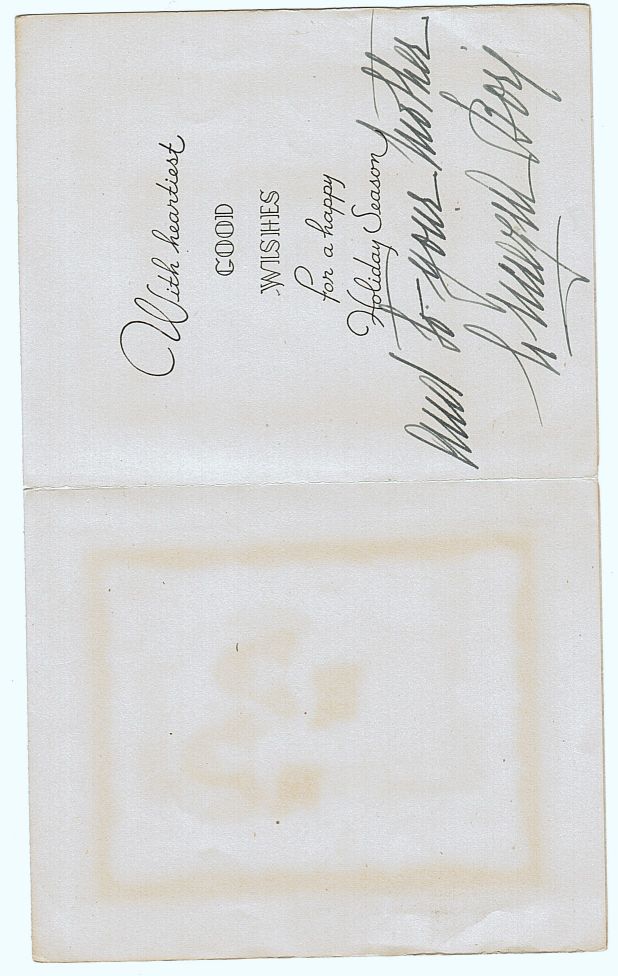 With heartiest
GOOD
WISHES
for a happy
Holiday Season
And to your Mother